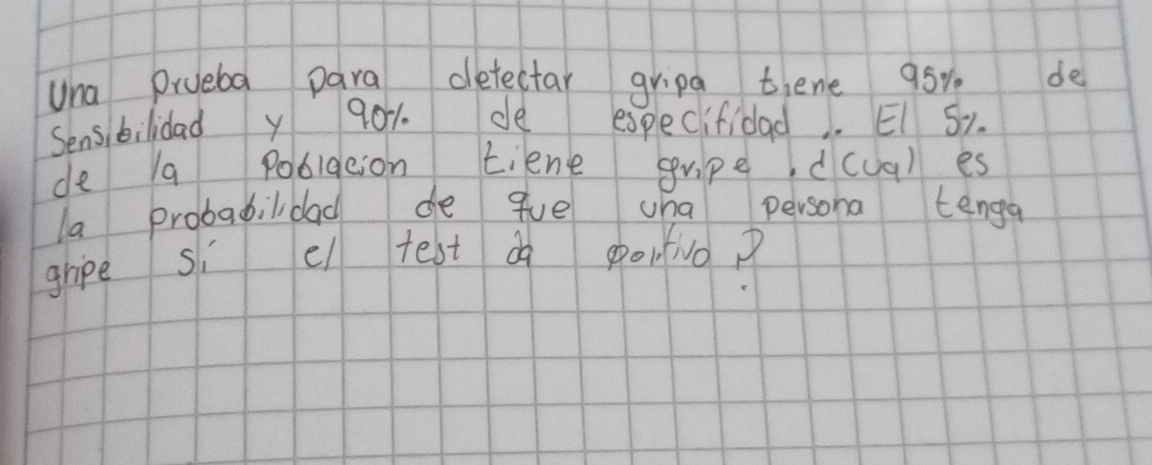 Una Prueba para detectar gripa tiene 95% de
Sensibilidad y 90% de especifidad.. El 5%
de la Poblacion tiene gripe. ¿Cual es
la probabilidad de que una persona tenga
gripe si el test da positivo?